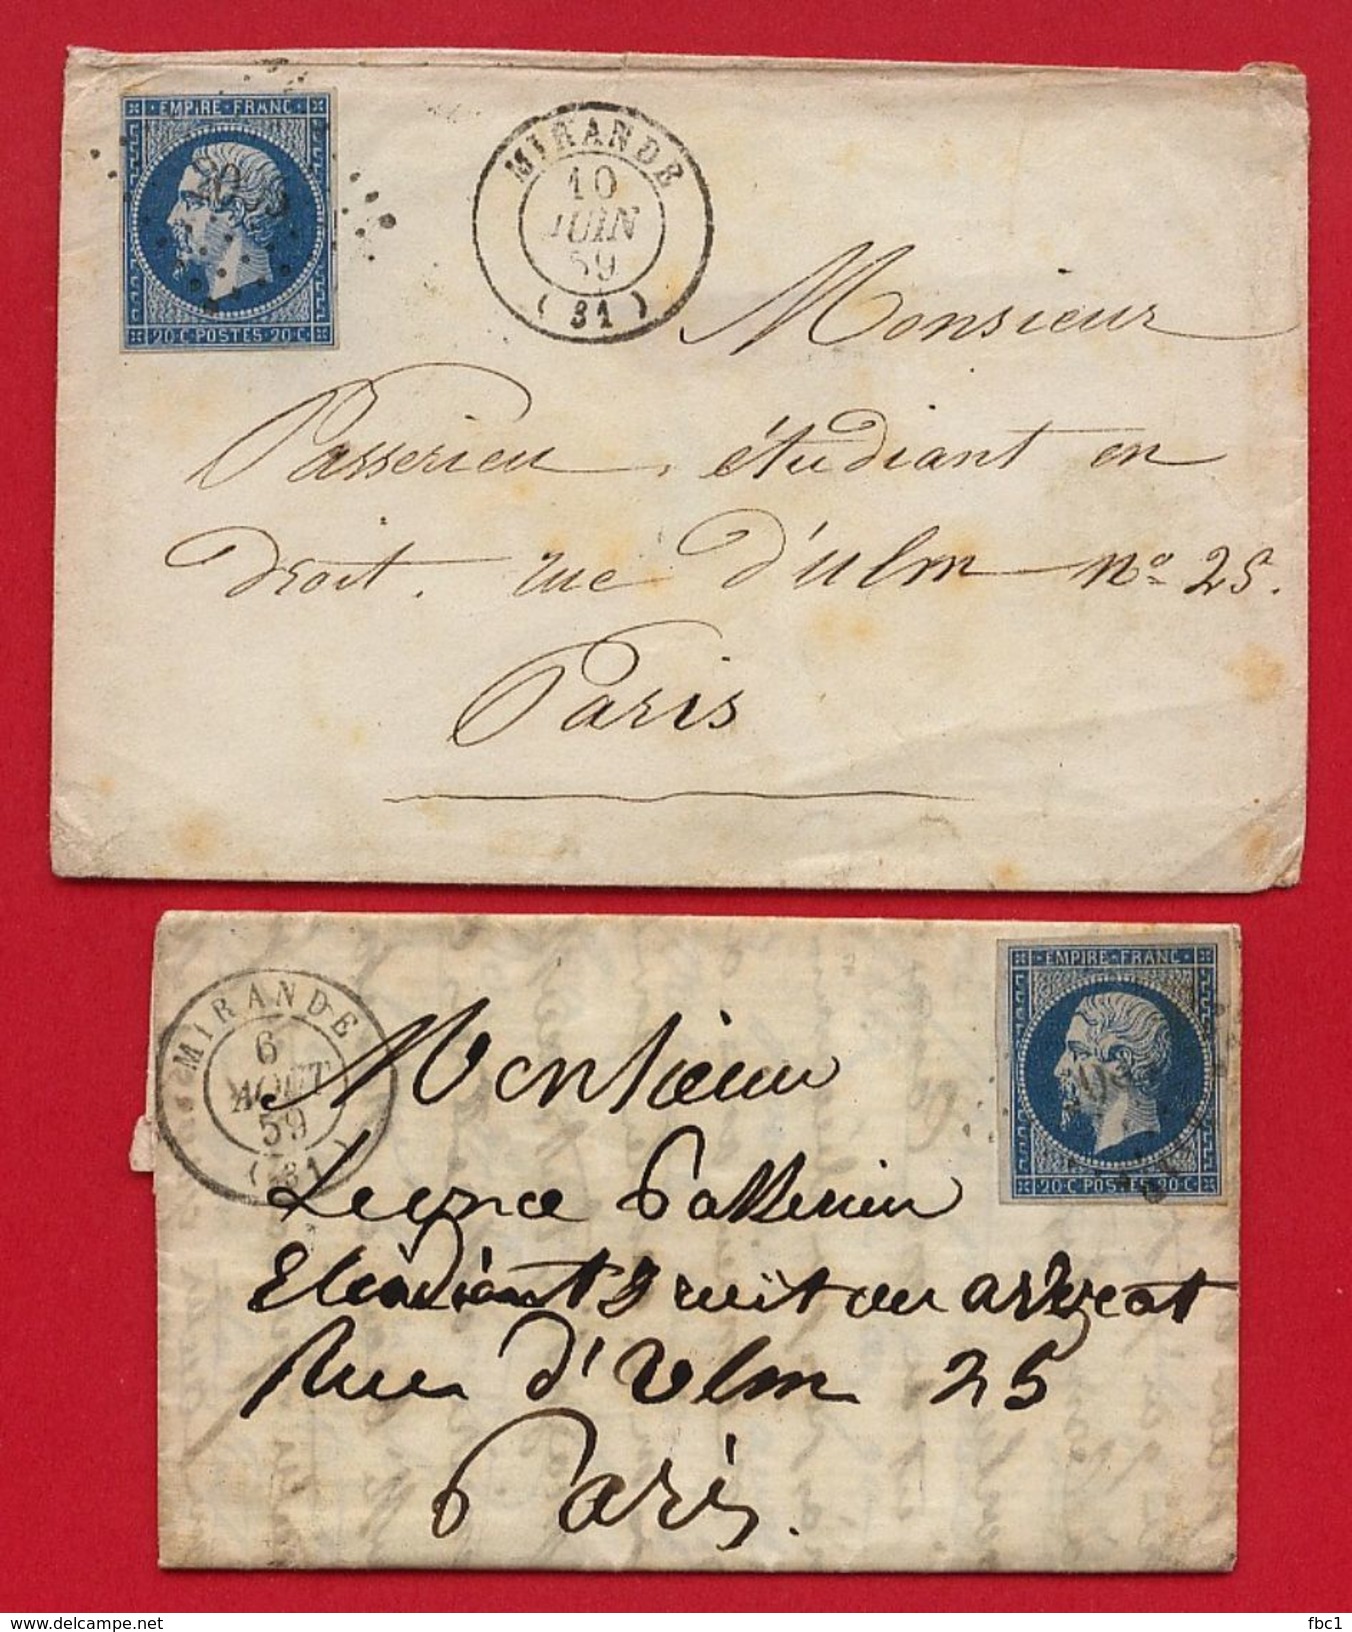 EMPIRE FRANC
20 C POSTES 20 C
MIRANDE
10
JUIN
59
(31)
Monsieur
Passerieu, étudiant en
Droit. rue d'ulm no 25.
Paris
MIRANDE
6
AOUT
59
(31)
EMPIRE FRANC
20 C POSTES 20 C
Monsieur
Passerieu
Rue d'Ulm 25
Paris.
delcampe.net
fbc1